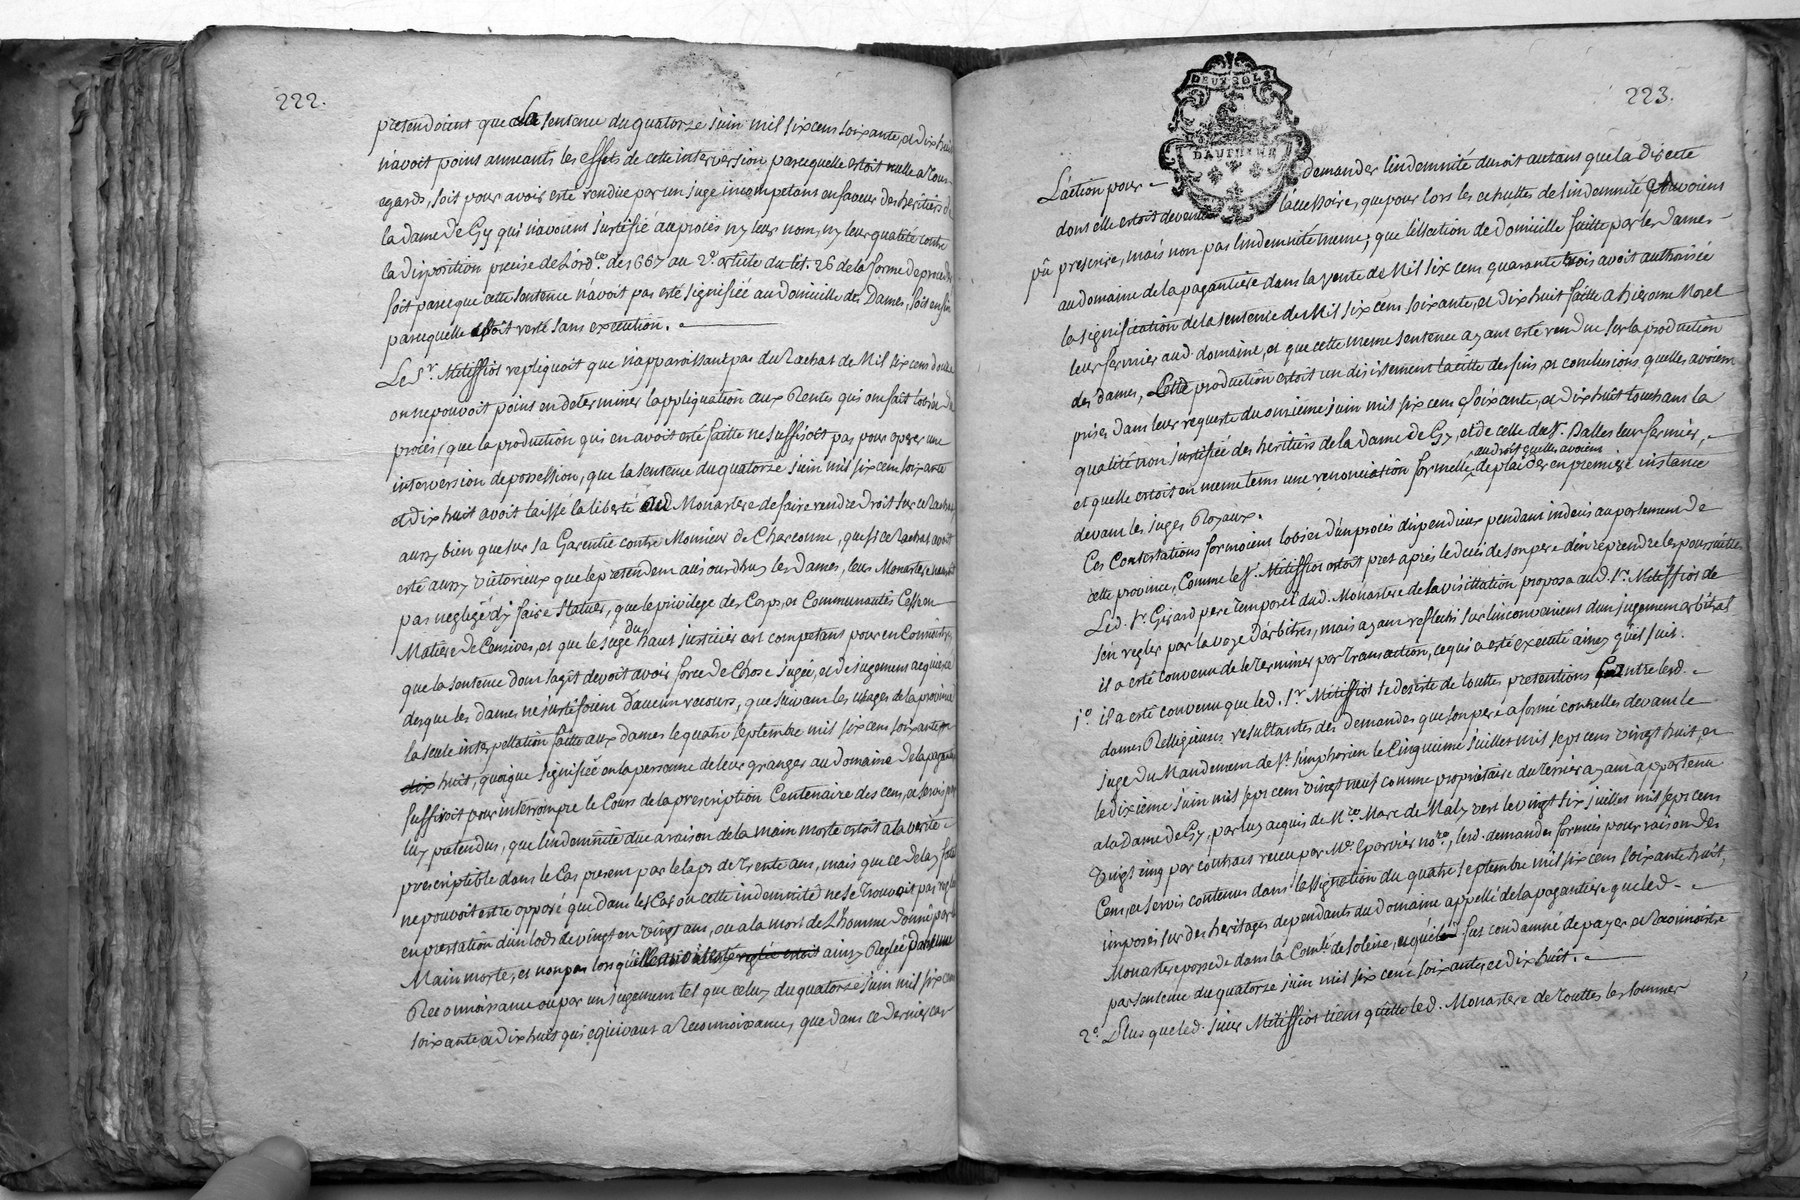 222.
pretendoient que la sentence du quatorze juin mil six cens soixante, et dix huit
n'avoit point aneanti les effets de cette interversion parcequelle estoit nulle a tous
egards, soit pour avoir esté rendue par un juge incompetant en faveur des heritiers de
la dame de Gy qui n'avoient justifié au procés ny leur nom, ny leur qualité contre
la disposition precise de l'ord.ce de 1667 au 2.e article du tit. 26 de la forme de proceder
soit parceque cette sentence n'avoit pas esté signifiée au domicille des Dames, soit enfin
parcequelle estoit resté sans execution.
Le S.r Mitiffiot repliquoit que n'apparoissant pas du Rachat de Mil six cens douze
on ne pouvoit point en determiner l'appliquation aux Rentes qui ont fait l'objet du
procés, que la production qui en avoit esté faitte ne suffisoit pas pour operer une
interversion de possession, que la sentence du quatorze juin mil six cens soixante
et dix huit avoit laissé la liberté aud Monastere de faire rendre droit sur ce Rachat
aussy bien que sur sa Garentie contre Monsieur de Chaconne, que si ce Rachat avoit
esté aussy victorieux que le pretendent aujourdhuy les Dames, leur Monastere n'auroit
pas negligé d'y faire statuer, que le privilege des Corps, et Communautés Cesse en
Matiere de Censives, et que le Juge du haut justicier est competant pour en Connoitre,
que la sentence dont sagit devoit avoir force de Chose jugée, et de jugement acquiescé
des que les dames ne justifioient d'aucun recours, que suivant les usages de la province
la seule interpellation faitte aux dames le quatre septembre mil six cens soixante
dix huit, quoique signifiée en la personne de leur granger au domaine de la pagantiere
suffisoit pour interrompre le Cours de la prescription Centenaire des cens, et servis par
luy pretendus, que l'indemnité due a raison de la main morte estoit a la verité
prescriptible dans le Cas present par le laps de trente ans, mais que ce delay fatal
ne pouvoit estre opposé que dans les Cas ou cette indemnité ne se trouvoit pas reglée
en prestation d'un lods de vingt en vingt ans, ou a la mort de L'homme donné par la
Main morte, et non pas lorsqu'elle avoit esté reglée estoit ainsy Reglée par une
Reconnoissance ou par un jugement tel que celuy du quatorze juin mil six cens
soixante, et dix huit qui equivaut a Reconnoissance, que dans ce dernier cas
223.
DEUX SOLS
DAUPHINÉ
L'action pour demander l'indemnité duroit autant que la directe
dont elle estoit devenue l'accessoire, que pour lors les echuttes de l'indemnité avoient
pû prescrire, mais non pas l'indemnité meme; que l'election de domicille faitte par les Dames
au domaine de la pagantiere dans la vente de Mil six cens quarante trois avoit authorisé
la signification de la sentence de Mil six cens soixante, et dix huit faitte a hierome Morel
leur fermier aud. domaine, et que cette meme sentence ayant esté rendue sur la production
des dames, Cette production estoit un desistement tacitte des fins, et conclusions quelles avoient
prises dans leur requeste du onzieme juin mil six cens soixante, et dix huit touchant la
qualité non justifiée des heritiers de la dame de Gy, et de celle du S.r Dalles leur fermier,
et quelle estoit en meme tems une renonciation formelle au droit quelles avoient de plaider en premiere instance
devant les juges Royaux.
Ces Contestations formoient l'objet d'un procés dispendieux pendant indecis au parlement de
cette province, Comme le S.r Mitiffiot estoit prest aprés le deces de son pere d'en reprendre les poursuittes
Led. S.r Girard pere temporel dud. Monastere de la visittation proposa aud. S.r Mitiffiot de
s'en regler par la voye d'arbitres, mais ayant reflechi sur l'inconvenient d'un jugement arbitral
il a esté convenu de le terminer par transaction, ce qui a esté executé ainsy qu'il suit.
1.o il a esté convenu que led. S.r Mitiffiot se desiste de touttes pretentions contre lesd.
dames Relligieuses resultantes des demandes que son pere a formé contr'elles devant le
juge du Mandement de St simphorien le Cinquieme juillet mil sept cens vingt huit, et
le dixieme juin mil sept cens vingt neuf comme proprietaire du terrier ayant appartenu
a la dame de Gy, par luy acquis de M.re Marc de Maly vert le vingt six juillet mil sept cens
vingt cinq par contract receu par M.e Epervier no.re, lesd. demandes formées pour raison des
Cens, et servis contenus dans l'assignation du quatre septembre mil six cens soixante huit,
imposés sur des heritages dependants du domaine appellé de la pagantiere que led.
Monastere possede dans la Com.té de soleise, et qu'il fut condamné de payer et Reconnoistre
par sentence du quatorze juin mil six cens soixante, et dix huit.
2.o Plus que led. sieur Mitiffiot tient quitte led. Monastere de touttes les sommes